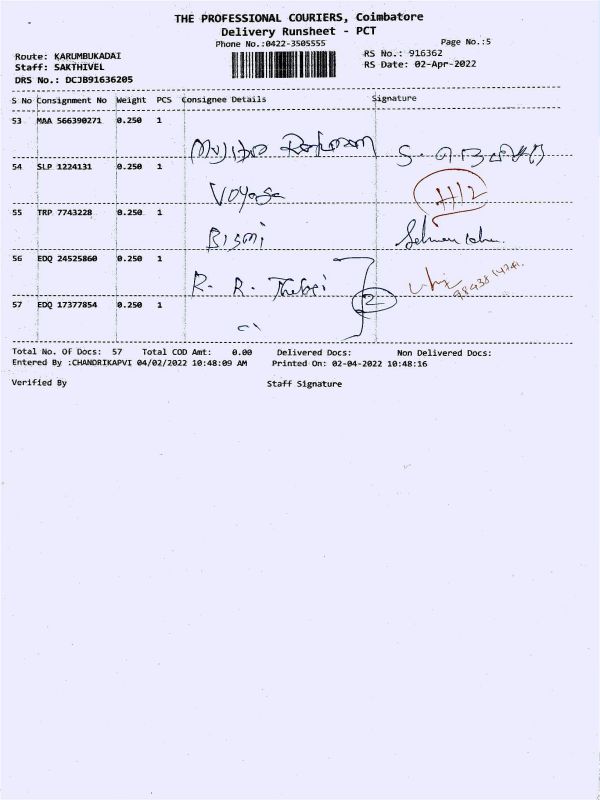 THE PROFESSIONAL COURIERS, Coimbatore
Delivery Runsheet - PCT
Phone No.:0422-3505555
Page No.:5
Route: KARUMBUKADAI
RS No.: 916362
Staff: SAKTHIVEL
RS Date: 02-Apr-2022
DRS No.: DCJB91636205
S No Consignment No Weight PCS Consignee Details Signature
53 MAA 566390271 0.250 1
Rahman
54 SLP 1224131 0.250 1
Voyage
55 TRP 7743228 0.250 1
Bismi
56 EDQ 24525860 0.250 1
R. R. 2
57 EDQ 17377854 0.250 1
Total No. Of Docs: 57 Total COD Amt: 0.00 Delivered Docs: Non Delivered Docs:
Entered By :CHANDRIKAPVI 04/02/2022 10:48:09 AM Printed On: 02-04-2022 10:48:16
Verified By Staff Signature